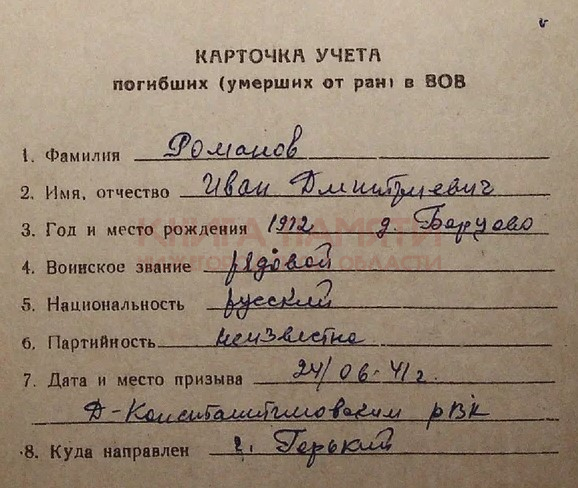 КАРТОЧКА УЧЕТА
погибших (умерших от ран) в ВОВ
1. Фамилия Романов
2. Имя, отчество Иван Дмитриевич
3. Год и место рождения 1912 д. Борцово
КНИГА ПАМЯТИ
НИЖЕГОРОДСКОЙ ОБЛАСТИ
4. Воинское звание рядовой
5. Национальность русский
6. Партийность неизвестна
7. Дата и место призыва 24/06-41г.
Д-Константиновским РВК
8. Куда направлен г. Горький